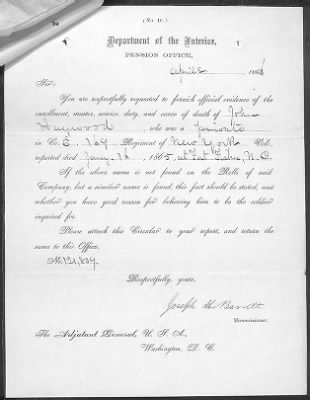 (No. 16.)
Department of the Interior,
PENSION OFFICE,
April 186
Sir:
You are respectfully requested to furnish official evidence of the
enrollment, muster, service, duty, and cause of death of John
Haywood, who was a private
in Co. E, 169 Regiment of New York Vols.,
reported died Jany. 18, 1865, at Fort Fisher, N.C.
If the above name is not found on the Rolls of said
Company, but a similar name is found, this fact should be stated, and
whether you have good reason for believing him to be the soldier
inquired for.
Please attach this Circular to your report, and return the
same to this Office.
Respectfully, yours,
Joseph H Barrett
Commissioner.
The Adjutant General, U. S. A.,
Washington, D. C.